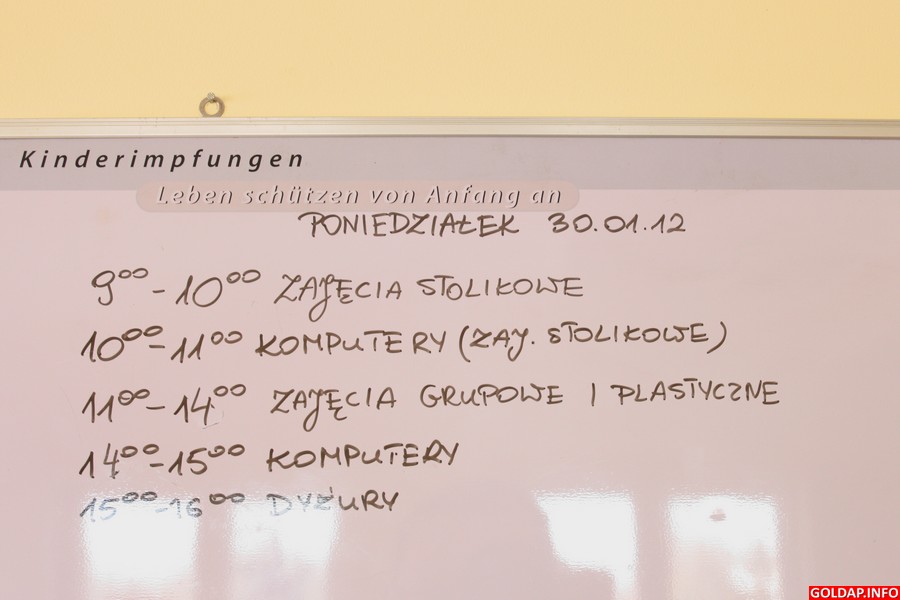 Kinderimpfungen
Leben schützen von Anfang an
PONIEDZIAŁEK 30.01.12
9⁰⁰ - 10⁰⁰ ZAJĘCIA STOLIKOWE
10⁰⁰ - 11⁰⁰ KOMPUTERY (ZAJ. STOLIKOWE)
11⁰⁰ - 14⁰⁰ ZAJĘCIA GRUPOWE I PLASTYCZNE
14⁰⁰ - 15⁰⁰ KOMPUTERY
15⁰⁰ - 16⁰⁰ DYŻURY
GOLDAP.INFO